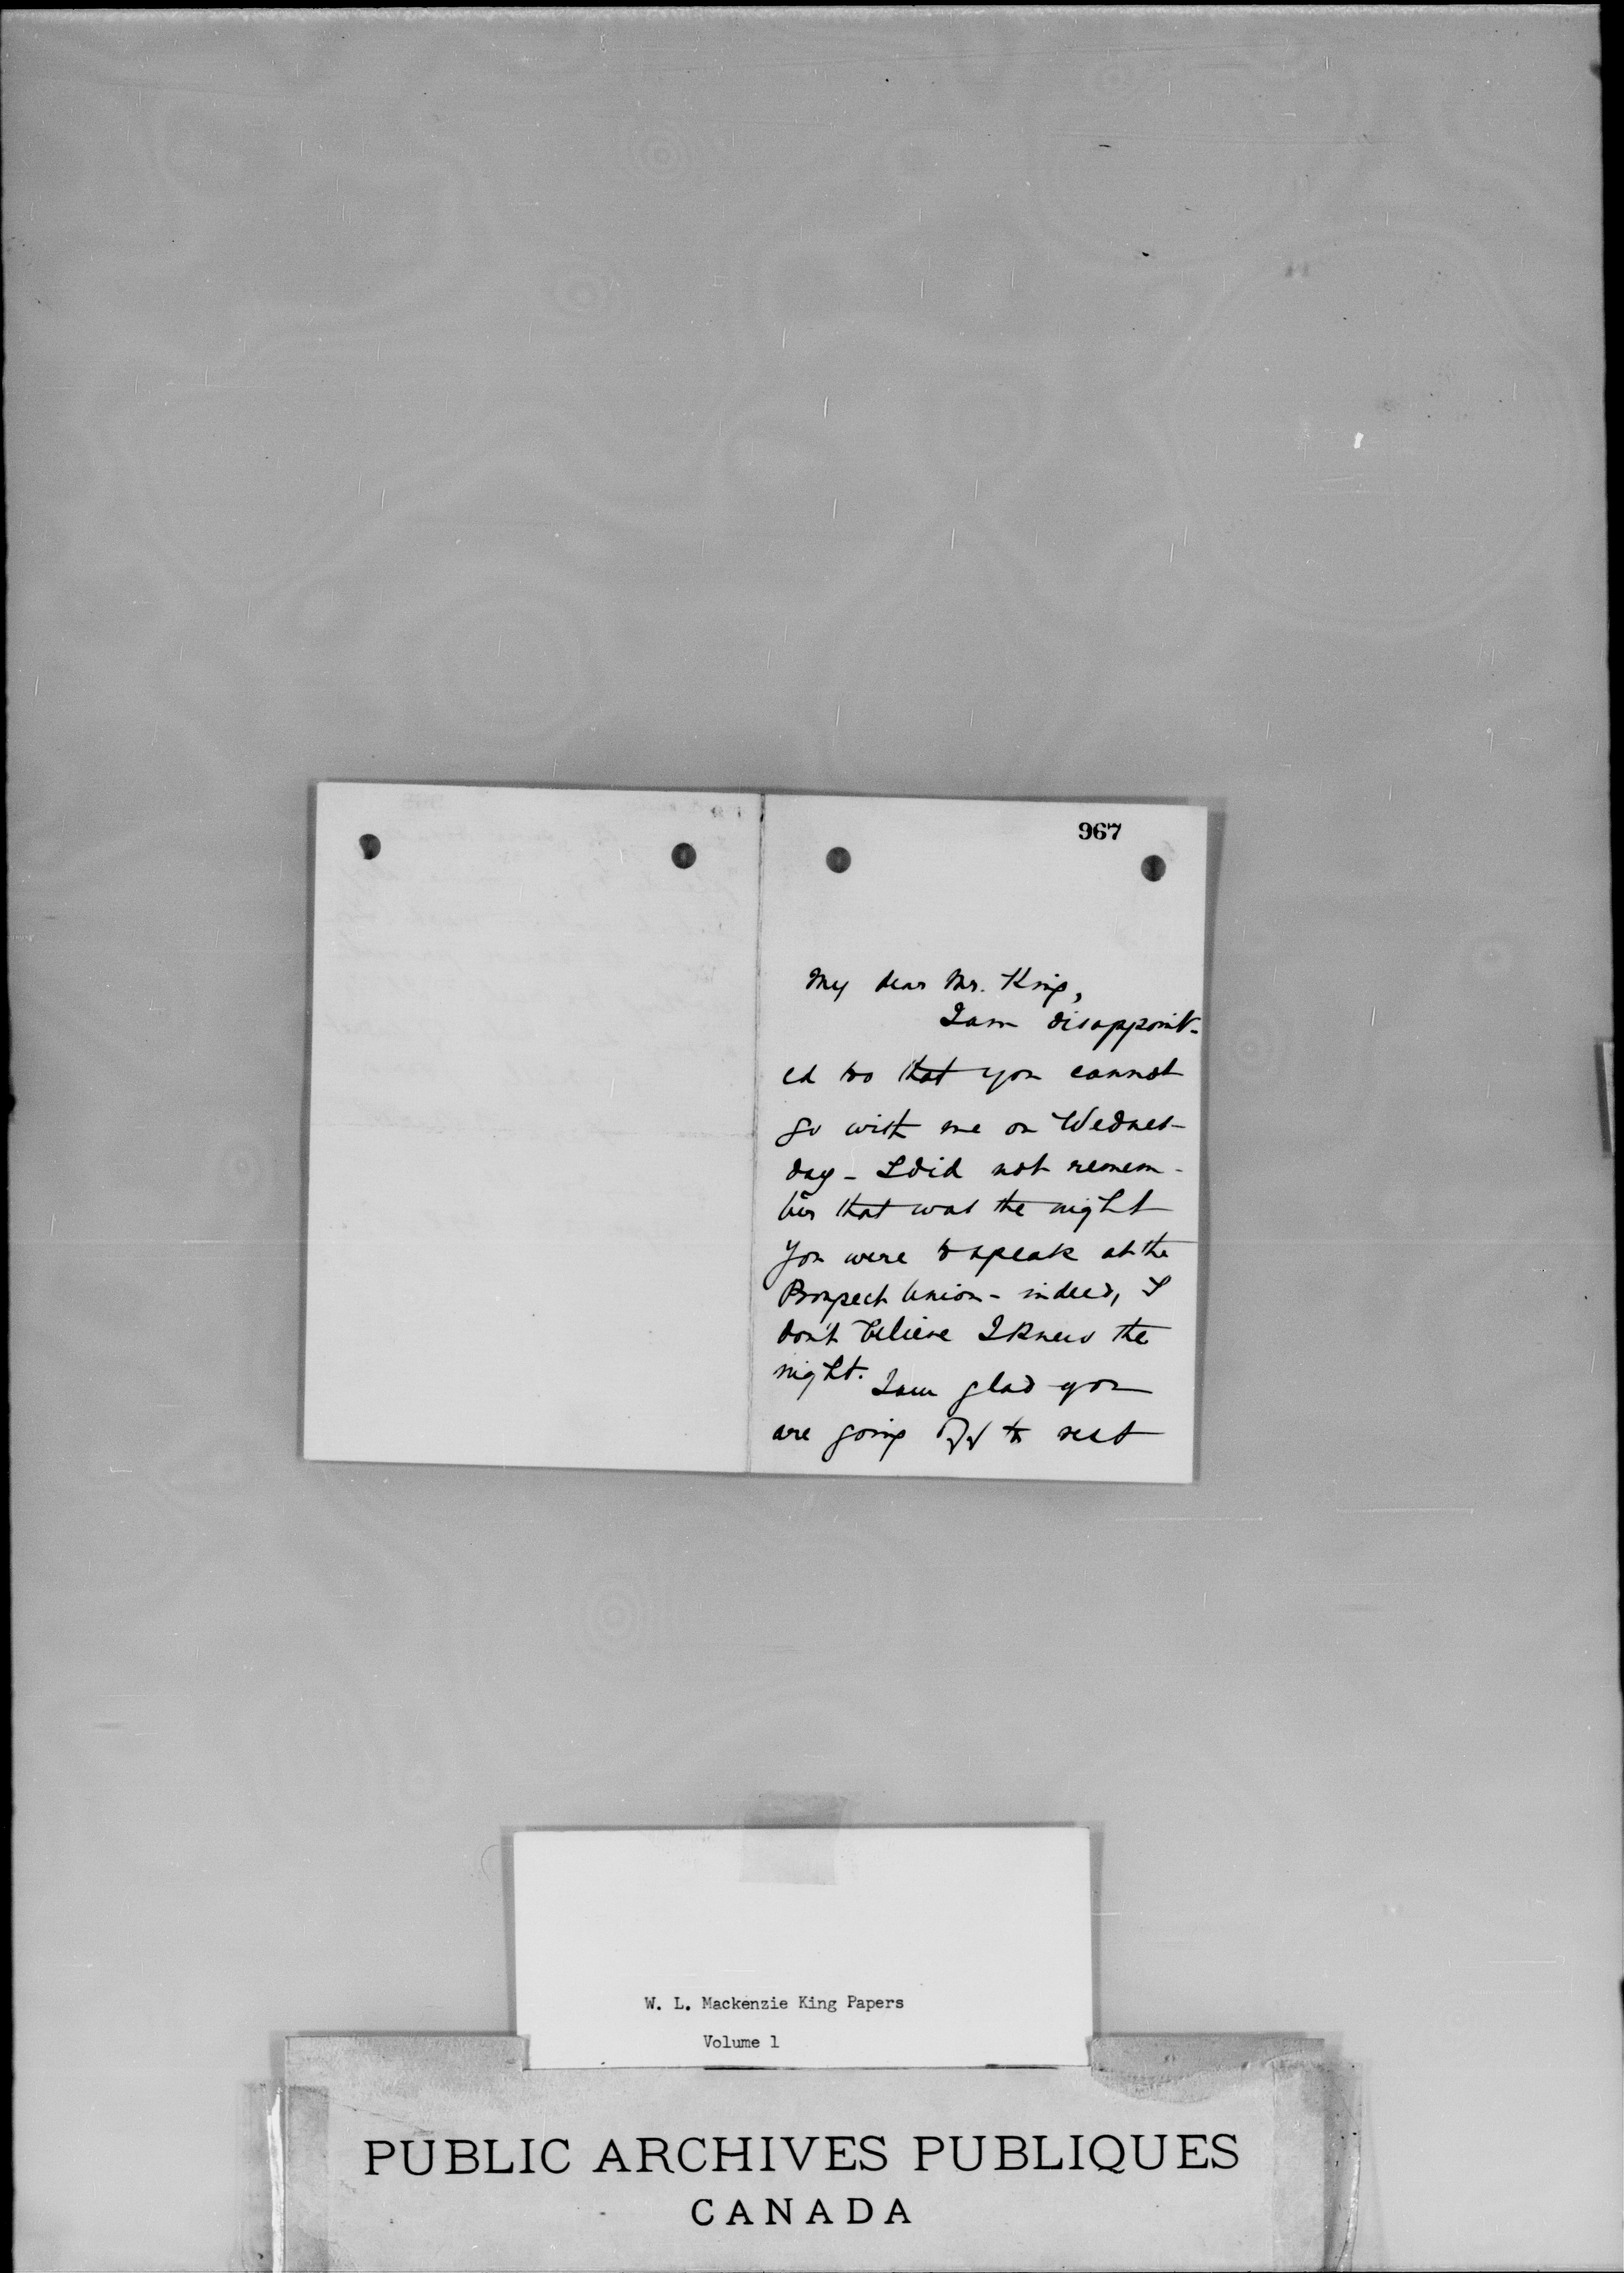 967
My dear Mr. King,
I am disappoint-
ed too that you cannot
go with me on Wednes-
day - I did not remem-
ber that was the night
you were to speak at the
Prospect Union - indeed, I
don't believe I knew the
night. I am glad you
are going off to rest
W. L. Mackenzie King Papers
Volume 1
PUBLIC ARCHIVES PUBLIQUES
CANADA